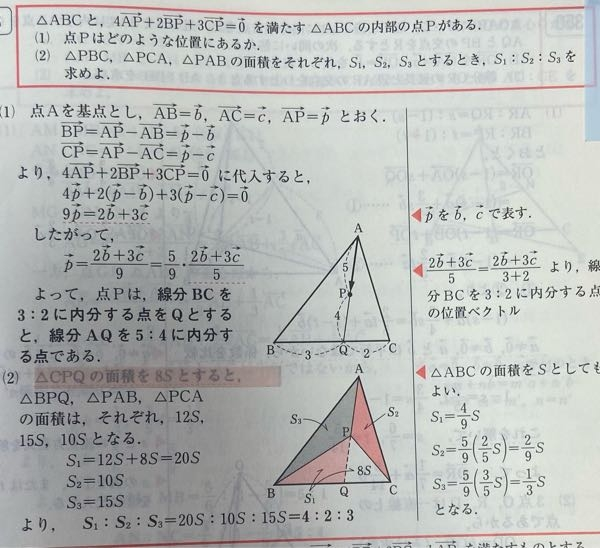 △ABCと，4AP+2BP+3CP=0 を満たす△ABCの内部の点Pがある．
(1) 点Pはどのような位置にあるか．
(2) △PBC，△PCA，△PABの面積をそれぞれ，S₁，S₂，S₃とするとき，S₁：S₂：S₃を
求めよ．
(1) 点Aを基点とし，AB=b，AC=c，AP=p とおく．
BP=AP−AB=p−b
CP=AP−AC=p−c
より，4AP+2BP+3CP=0 に代入すると，
4p+2(p−b)+3(p−c)=0
9p=2b+3c
◀pをb，cで表す．
したがって，
p=(2b+3c)/9=5/9・(2b+3c)/5
◀(2b+3c)/5=(2b+3c)/(3+2) より，線
分BCを3：2に内分する点
の位置ベクトル
よって，点Pは，線分BCを
3：2に内分する点をQとする
と，線分AQを5：4に内分す
る点である．
A
5
P
4
B
3
Q
2
C
(2) △CPQの面積を8Sとすると，
△BPQ，△PAB，△PCA
の面積は，それぞれ，12S，
15S，10Sとなる．
S₁=12S+8S=20S
S₂=10S
S₃=15S
より，S₁：S₂：S₃=20S：10S：15S=4：2：3
A
S₃
S₂
P
8S
B
S₁
Q
C
◀△ABCの面積をSとしても
よい．
S₁=4/9S
S₂=5/9(2/5S)=2/9S
S₃=5/9(3/5S)=1/3S
となる．